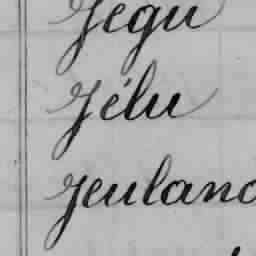 Jégu
Jélu
Jeuland